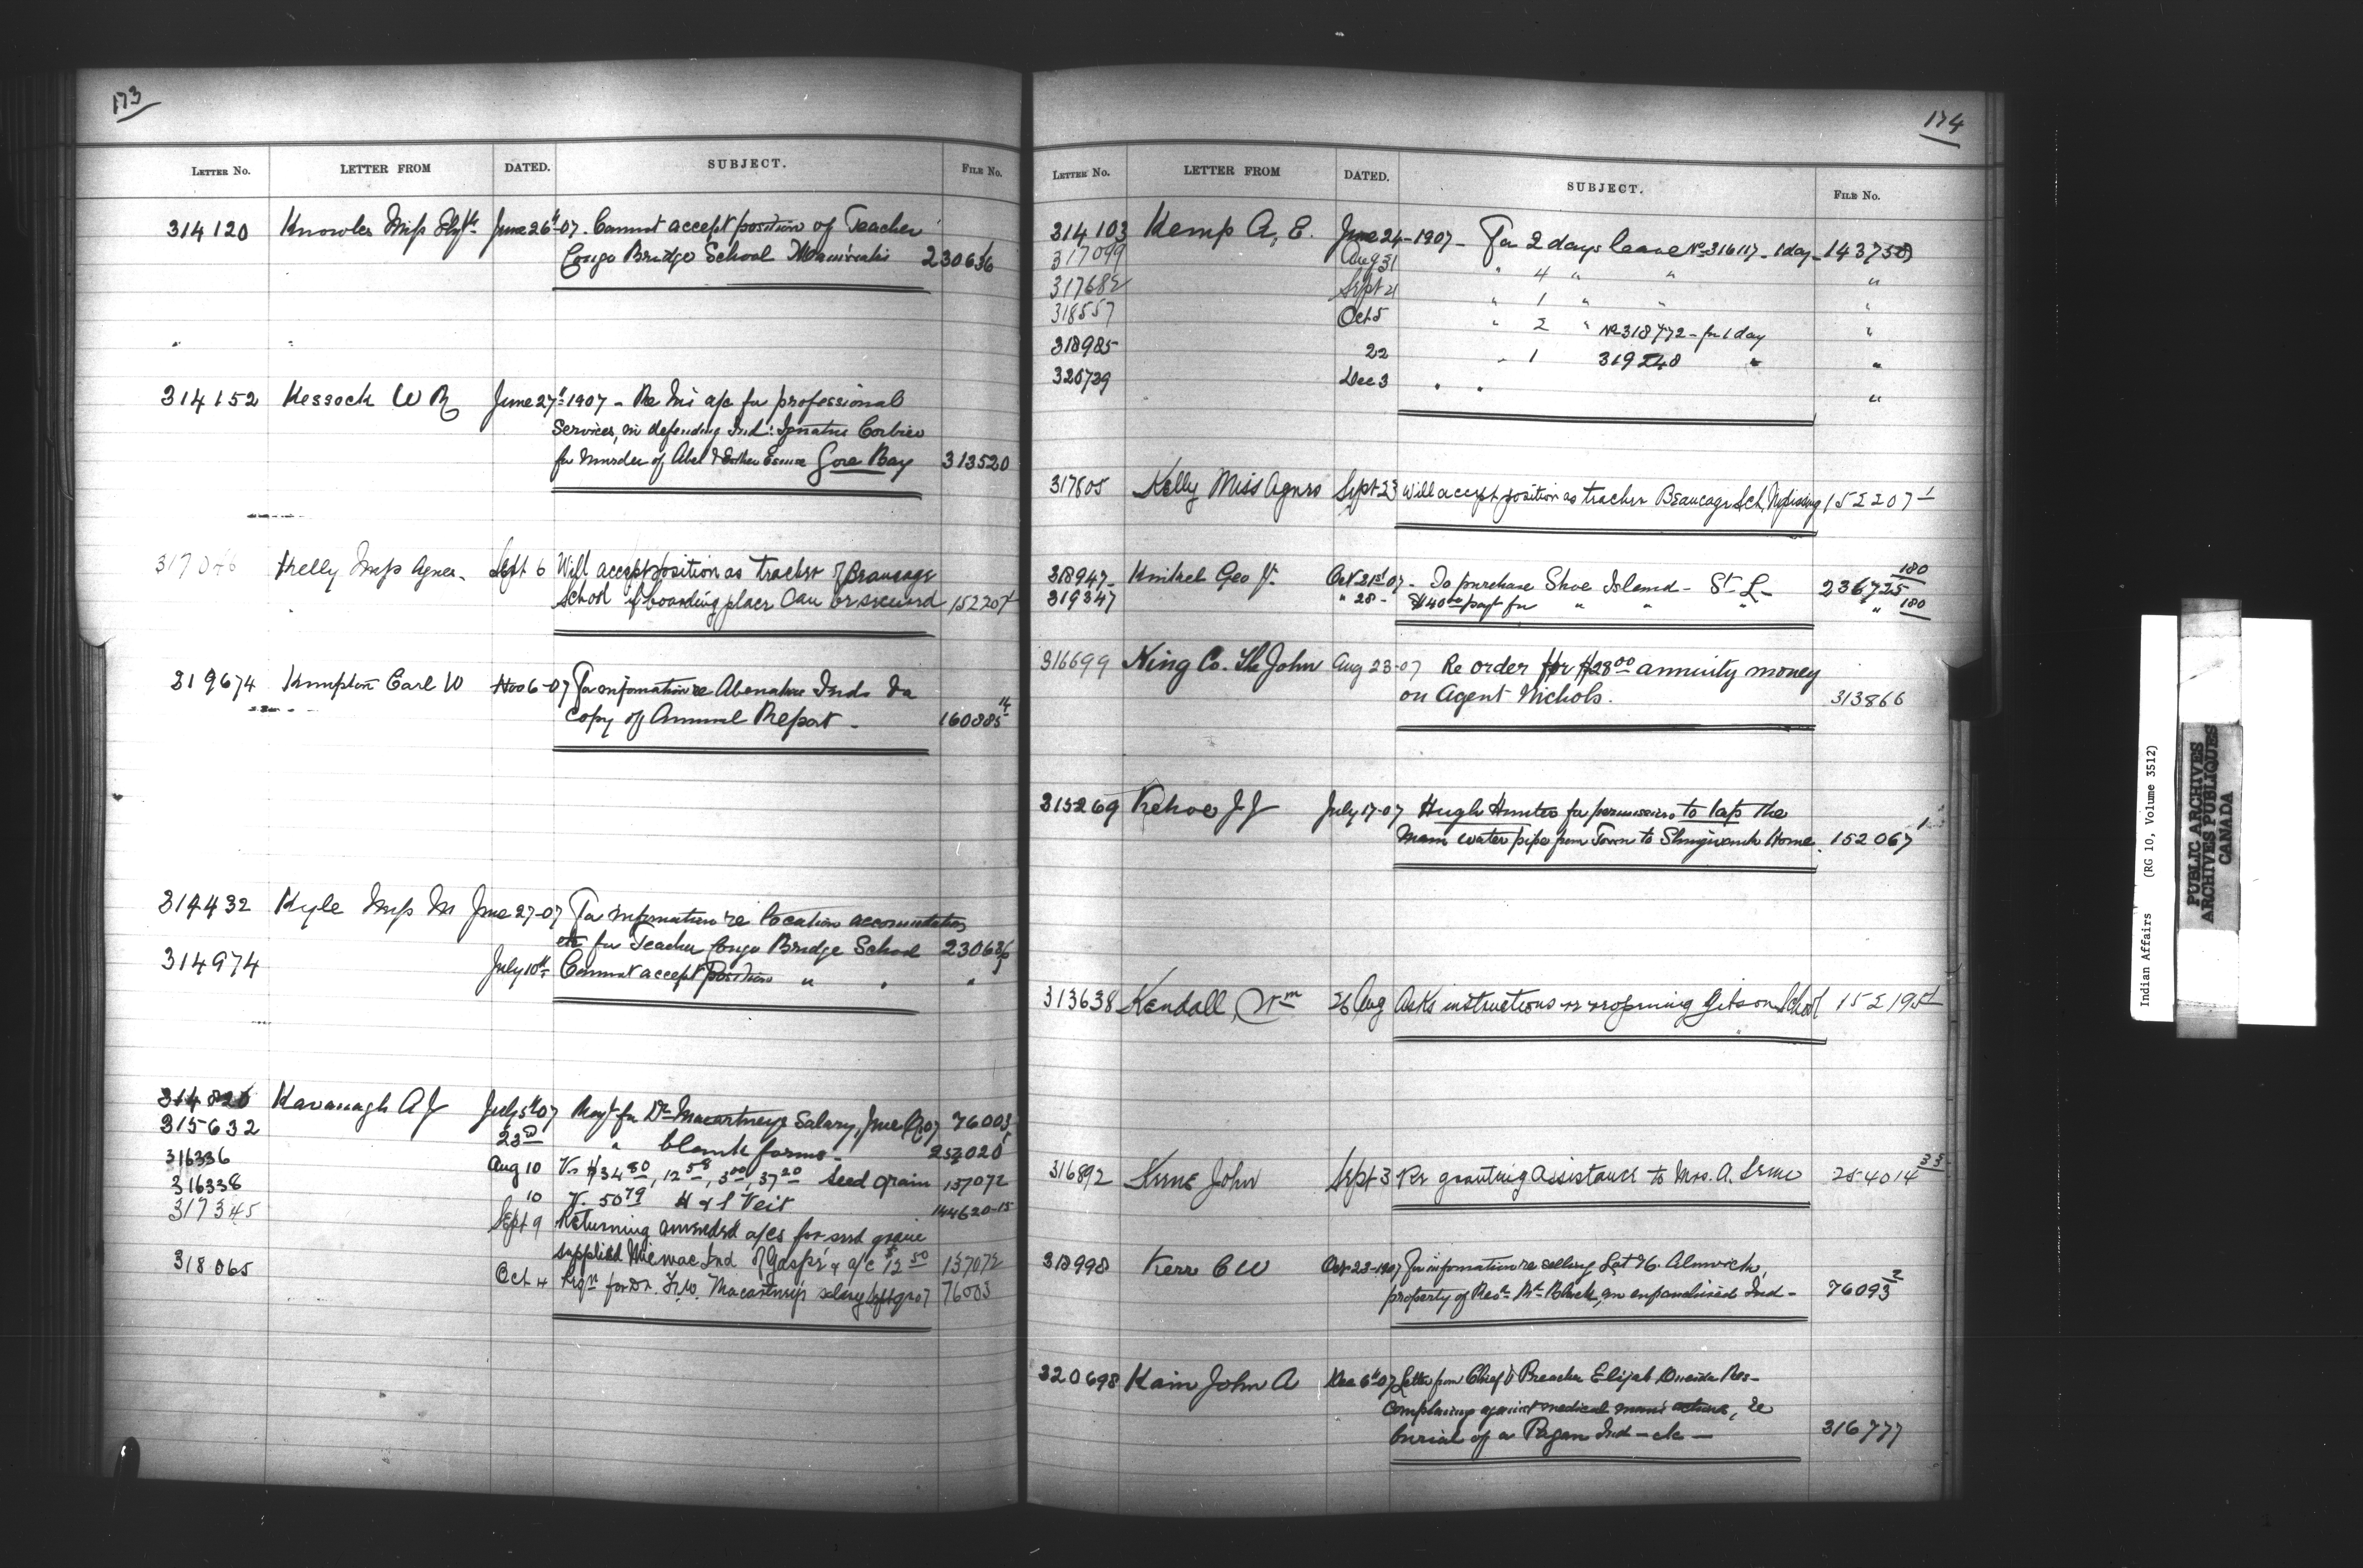 173
LETTER NO. LETTER FROM DATED. SUBJECT. FILE No.
314120 Knowles Miss June 26th 07. Cannot accept position of Teacher
Congo Bridge School 230636
314152 Kessock W R June 27th 1907 - Re his a/c for professional
Services, in defending Ind: Ignatus Corbiere
for Murder of Abel & Esther Gore Bay 313520
317046 Kelly Miss Agnes - Sept 6 Will accept position as teacher of Beaucage
School if boarding place can be secured 152207-1
319674 Kempton Earl W Nov 6-07 For information re Abenakis Inds &a
copy of Annual Report - 160885 14
314432 Kyle Miss M June 27-07 For information re location accomodation
etc for Teacher Congo Bridge School 230636
314974 July 10th Cannot accept Position " " "
314826 Kavanagh A J July 5th 07 Reqt for Dr Macartneys Salary, June Q 07 76003
315632 23rd " blank forms - 253020
316336 Aug 10 Vr $34 80, 12 58, 5 00, 37 20 Seed grain 137072
316338 10 V. 50 79 H & S Veit 144620-15
317345 Sept 9 Returning amended a/cs for seed grain
supplied Micmac Ind of Gaspé & a/c $12 50 137072
318065 Oct 4 Reqn for Dr. F.W. Macartney's salary Sept qr 07 76003
174
LETTER No. LETTER FROM DATED. SUBJECT. FILE No.
314103 Kemp A, E. June 24-1907 - For 2 days leave No 316117 - 1 day - 143750
317099 Aug 31 " 4 " " "
317682 Sept 21 " 1 " " "
318557 Oct 5 " 2 " No 318772 - for 1 day "
318985 22 " 1 319240 " "
320739 Dec 3 " " "
317805 Kelly Miss Agnes Sept 23 Will accept position as teacher Beaucage Sch. Nipissing 152207-1
318947 - Knikel Geo J. Oct 21st 07 - To purchase Shoe Island - St L - 236725 180
319347 " 28 - $40 00 payt for " " " " 180
316699 King Co. The John Aug 23-07 Re order for $28 00 annuity money
on Agent Nichols. 313866
315269 Kehoe J J July 17-07 Hugh Hunter for permission to tap the
Main water pipe from Town to Shingwauk Home. 152067 1
313638 Kendall, Wm 26 Aug Asks instructions re reopening Gibson School 152195-1
316892 John Sept 3 Re granting Assistance to Mrs. A. 254014 33
318998 Kerr C W Oct 23-1907 For information re selling Lot 76. Alnwick,
property of Revd Black, an enfranchised Ind - 76093 2
320698 Kain John A Dec 6th 07 Letter from Chief & Preacher Elijah Oneida Res -
Complaining against medical mans actions, re
burial of a Pagan Ind - etc - 316777
Indian Affairs (RG 10, Volume 3512)
PUBLIC ARCHIVES
ARCHIVES PUBLIQUES
CANADA